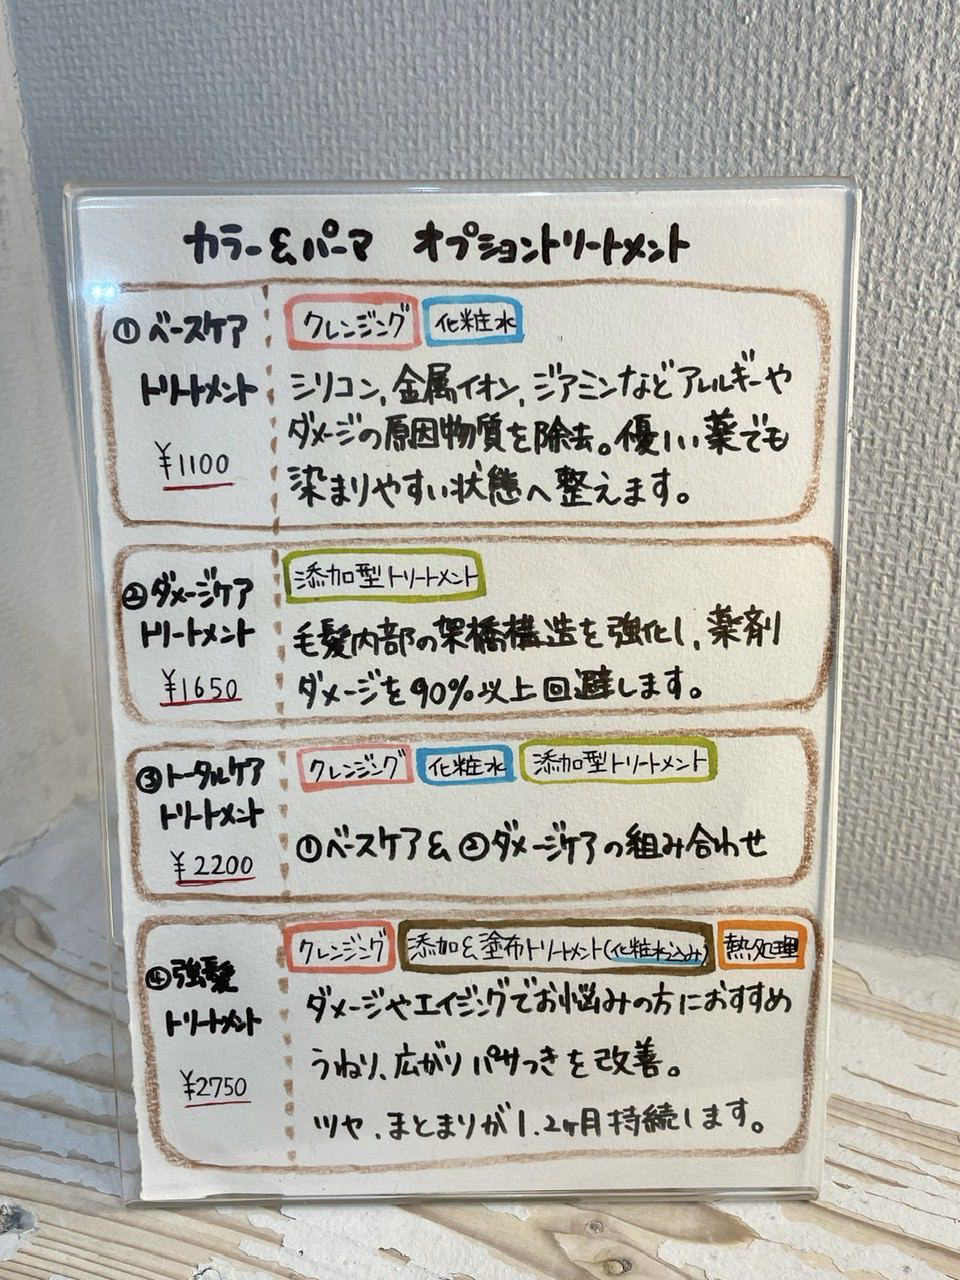 カラー&パーマ オプショントリートメント
①ベースケア
トリートメント
¥1100
クレンジング 化粧水
シリコン,金属イオン,ジアミンなどアレルギーや
ダメージの原因物質を除去。優しい薬でも
染まりやすい状態へ整えます。
②ダメージケア
トリートメント
¥1650
添加型トリートメント
毛髪内部の架橋構造を強化し,薬剤
ダメージを90%以上回避します。
③トータルケア
トリートメント
¥2200
クレンジング 化粧水 添加型トリートメント
①ベースケア&②ダメージケアの組み合わせ
④強髪
トリートメント
¥2750
クレンジング 添加&塗布トリートメント(化粧水込み) 熱処理
ダメージやエイジングでお悩みの方におすすめ
うねり、広がりパサつきを改善。
ツヤ、まとまりが1.2ヶ月持続します。